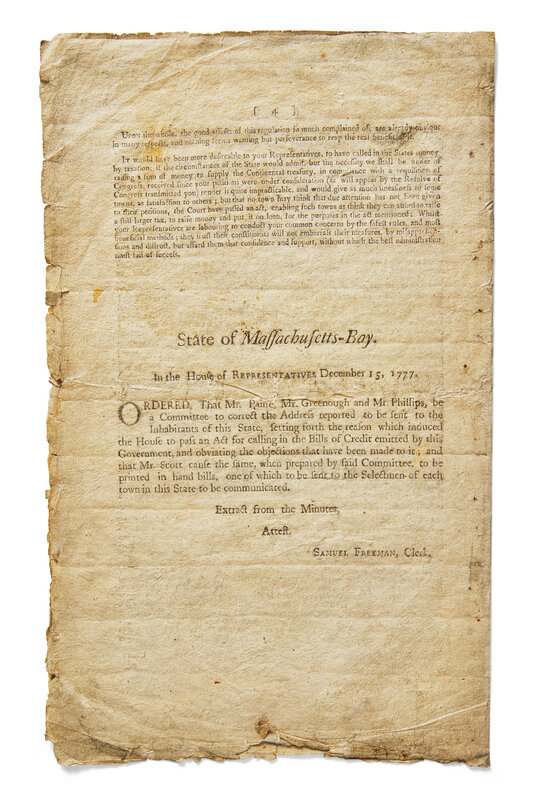 [ 4 ]
Upon the whole, the good effects of this regulation ſo much complained of, are already obvious
in many reſpects, and nothing ſeems wanting but perſeverance to reap the real benefit of it.
It would have been more deſireable to your Repreſentatives, to have called in the States money
by taxation, if the circumſtances of the State would admit, but the neceſſity we ſhall be under of
raiſing a ſum of money to ſupply the Continental treaſury, in compliance with a requiſition of
Congreſs, received ſince your petitions were under conſideration (as will appear by the Reſolve of
Congreſs tranſmitted you) render it quite impracticable, and would give as much uneaſineſs to ſome
towns, as ſatisfaction to others; but that no town may think that due attention has not been given
to their petitions, the Court have paſſed an act, enabling ſuch towns as think they can afford to raiſe
a ſtill larger tax, to raiſe money and put it on loan, for the purpoſes in the act mentioned: Whilſt
your Repreſentatives are labouring to conduct your common concerns by the ſafeſt rules, and moſt
beneficial methods; they truſt their conſtituents will not embarraſs their meaſures, by miſapprehen-
ſions and diſtruſt, but afford them that confidence and ſupport, without which the beſt adminiſtration
muſt fail of ſucceſs.
State of Maſſachuſetts-Bay.
In the Houſe of REPRESENTATIVES December 15, 1777.
ORDERED, That Mr. Paine, Mr. Greenough and Mr. Phillips, be
a Committee to correct the Addreſs reported to be ſent to the
Inhabitants of this State, ſetting forth the reaſon which induced
the Houſe to paſs an Act for calling in the Bills of Credit emitted by this
Government, and obviating the objections that have been made to it; and
that Mr. Scott cauſe the ſame, when prepared by ſaid Committee, to be
printed in hand bills, one of which to be ſent to the Selectmen of each
town in this State to be communicated.
Extract from the Minutes,
Atteſt.
SAMUEL FREEMAN, Clerk.